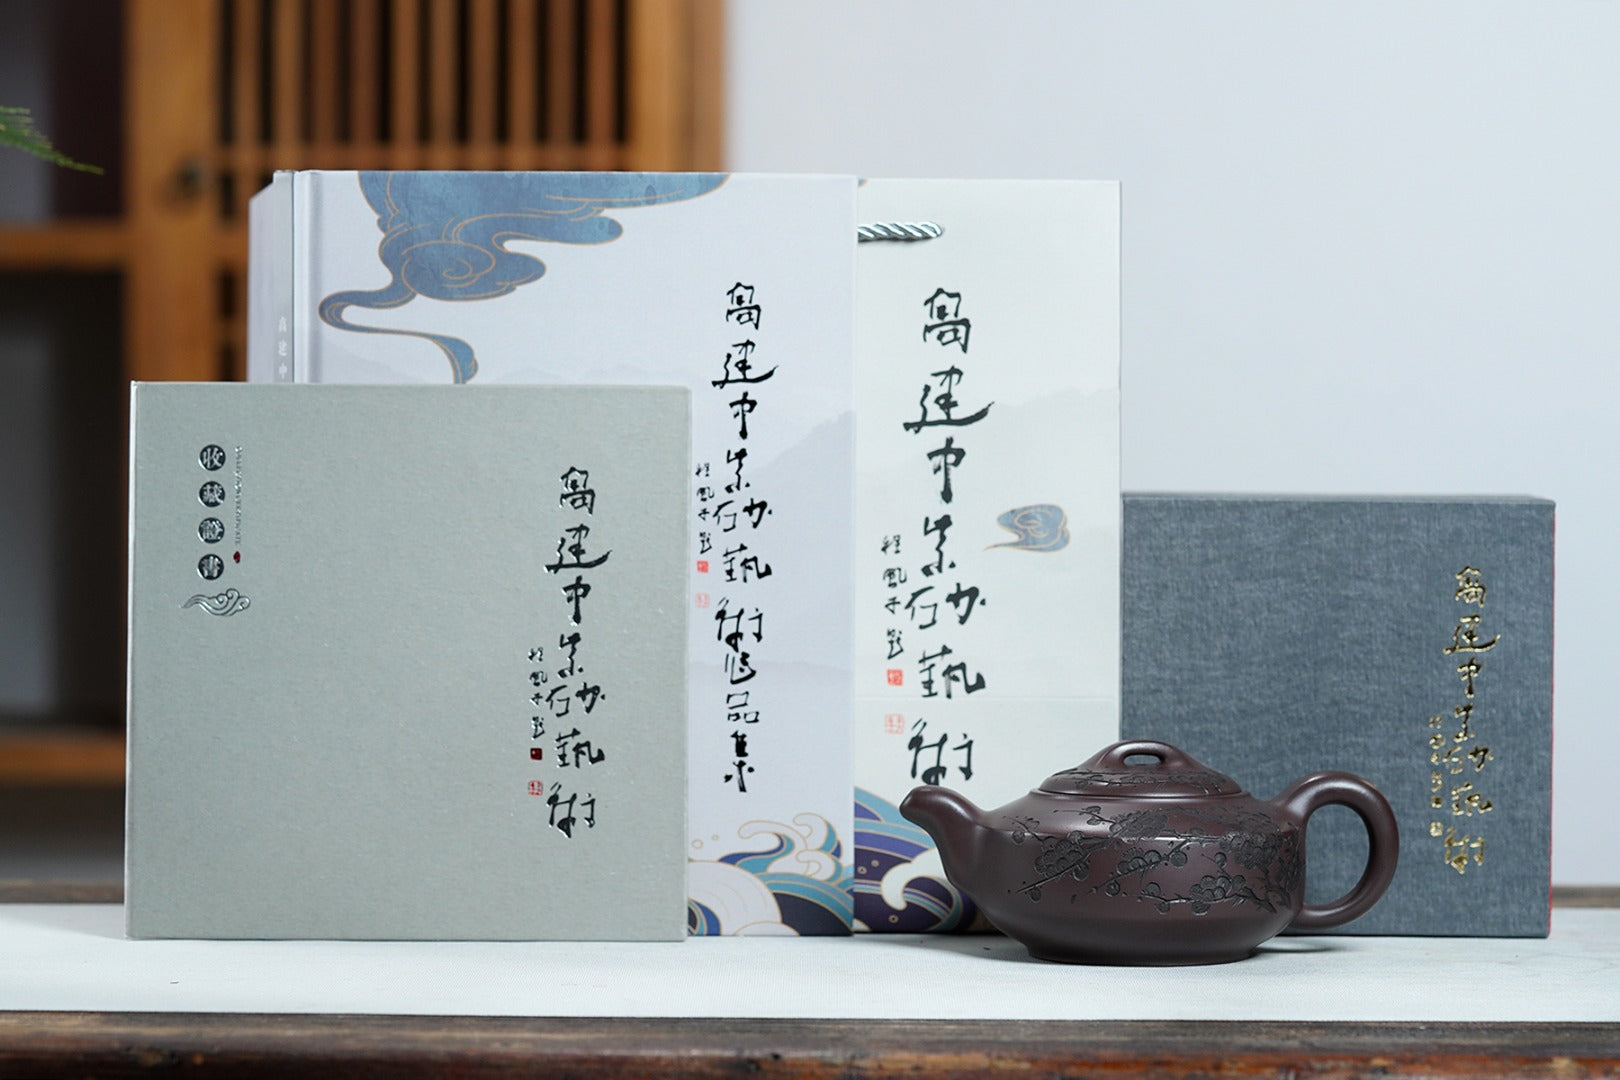 收藏證書
高建中紫砂藝術
程風子題
高建中
高建中紫砂藝術作品集
程風子題
高建中紫砂藝術
程風子題
高建中紫砂藝術